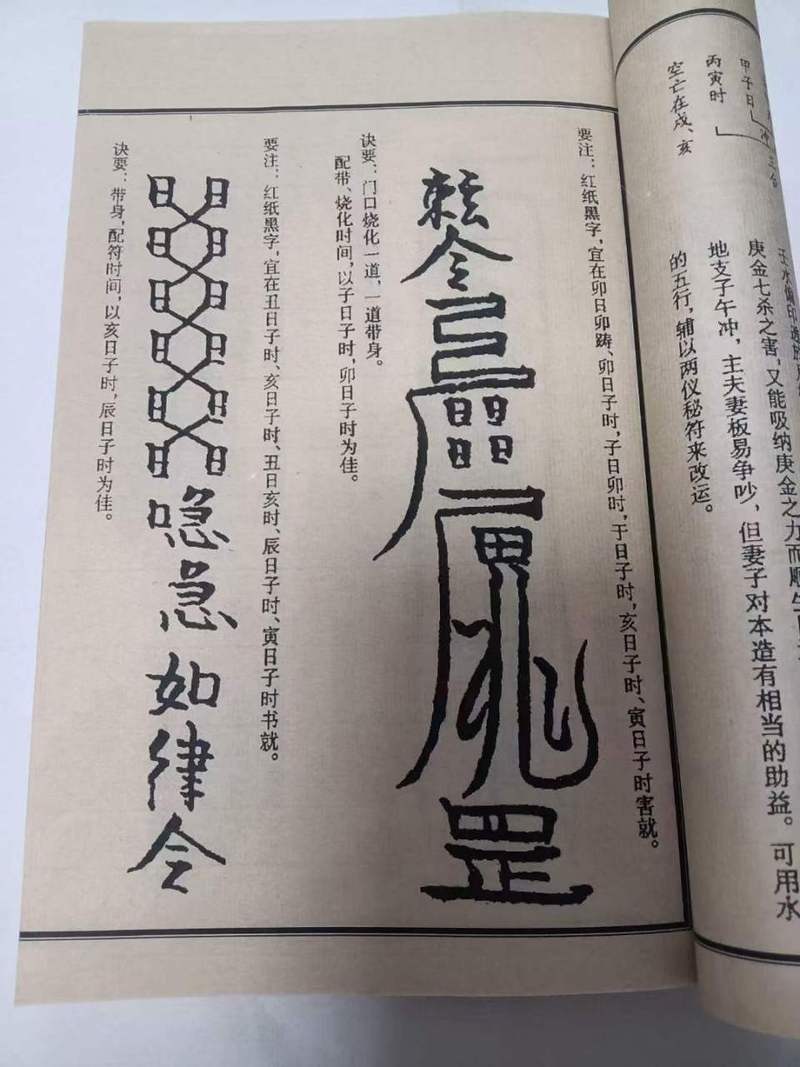 甲子日
冲
丙寅时
空亡在戍、亥
庚金七杀之害，又能吸纳庚金之力而顺生
地支子午冲，主夫妻板易争吵，但妻子对本造有相当的助益。可用水
的五行，辅以两仪秘符来改运。
要注：红纸黑字，宜在卯日卯踌、卯日子时，子日卯时，于日子时，亥日子时、寅日子时害就。
令
罡
诀要：门口烧化一道，一道带身。
配带、烧化时间，以子日子时，卯日子时为佳。
要注：红纸黑字，宜在丑日子时、亥日子时、丑日亥时、辰日子时、寅日子时书就。
日日
日日
日日
日日
日日
日日
急如律令
诀要：带身，配符时间，以亥日子时，辰日子时为佳。